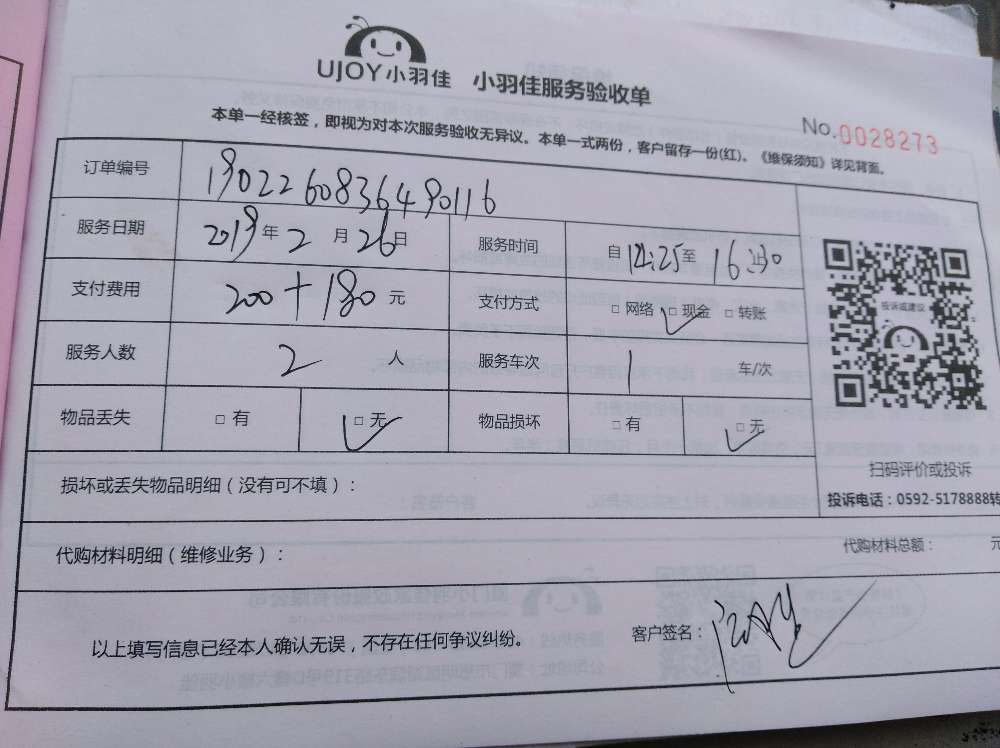 UJOY小羽佳 小羽佳服务验收单
No.0028273
本单一经核签，即视为对本次服务验收无异议。本单一式两份，客户留存一份(红)。《维保须知》详见背面。
订单编号 1902260836490116
服务日期 2019年2月26日 服务时间 自14:25至16:30止
支付费用 200+180元 支付方式 □网络 □现金 □转账
服务人数 2人 服务车次 1 车/次
物品丢失 □有 □无 物品损坏 □有 □无
投诉或建议
扫码评价或投诉
投诉电话：0592-5178888转
损坏或丢失物品明细（没有可不填）：
代购材料明细（维修业务）： 代购材料总额： 元
以上填写信息已经本人确认无误，不存在任何争议纠纷。 客户签名：